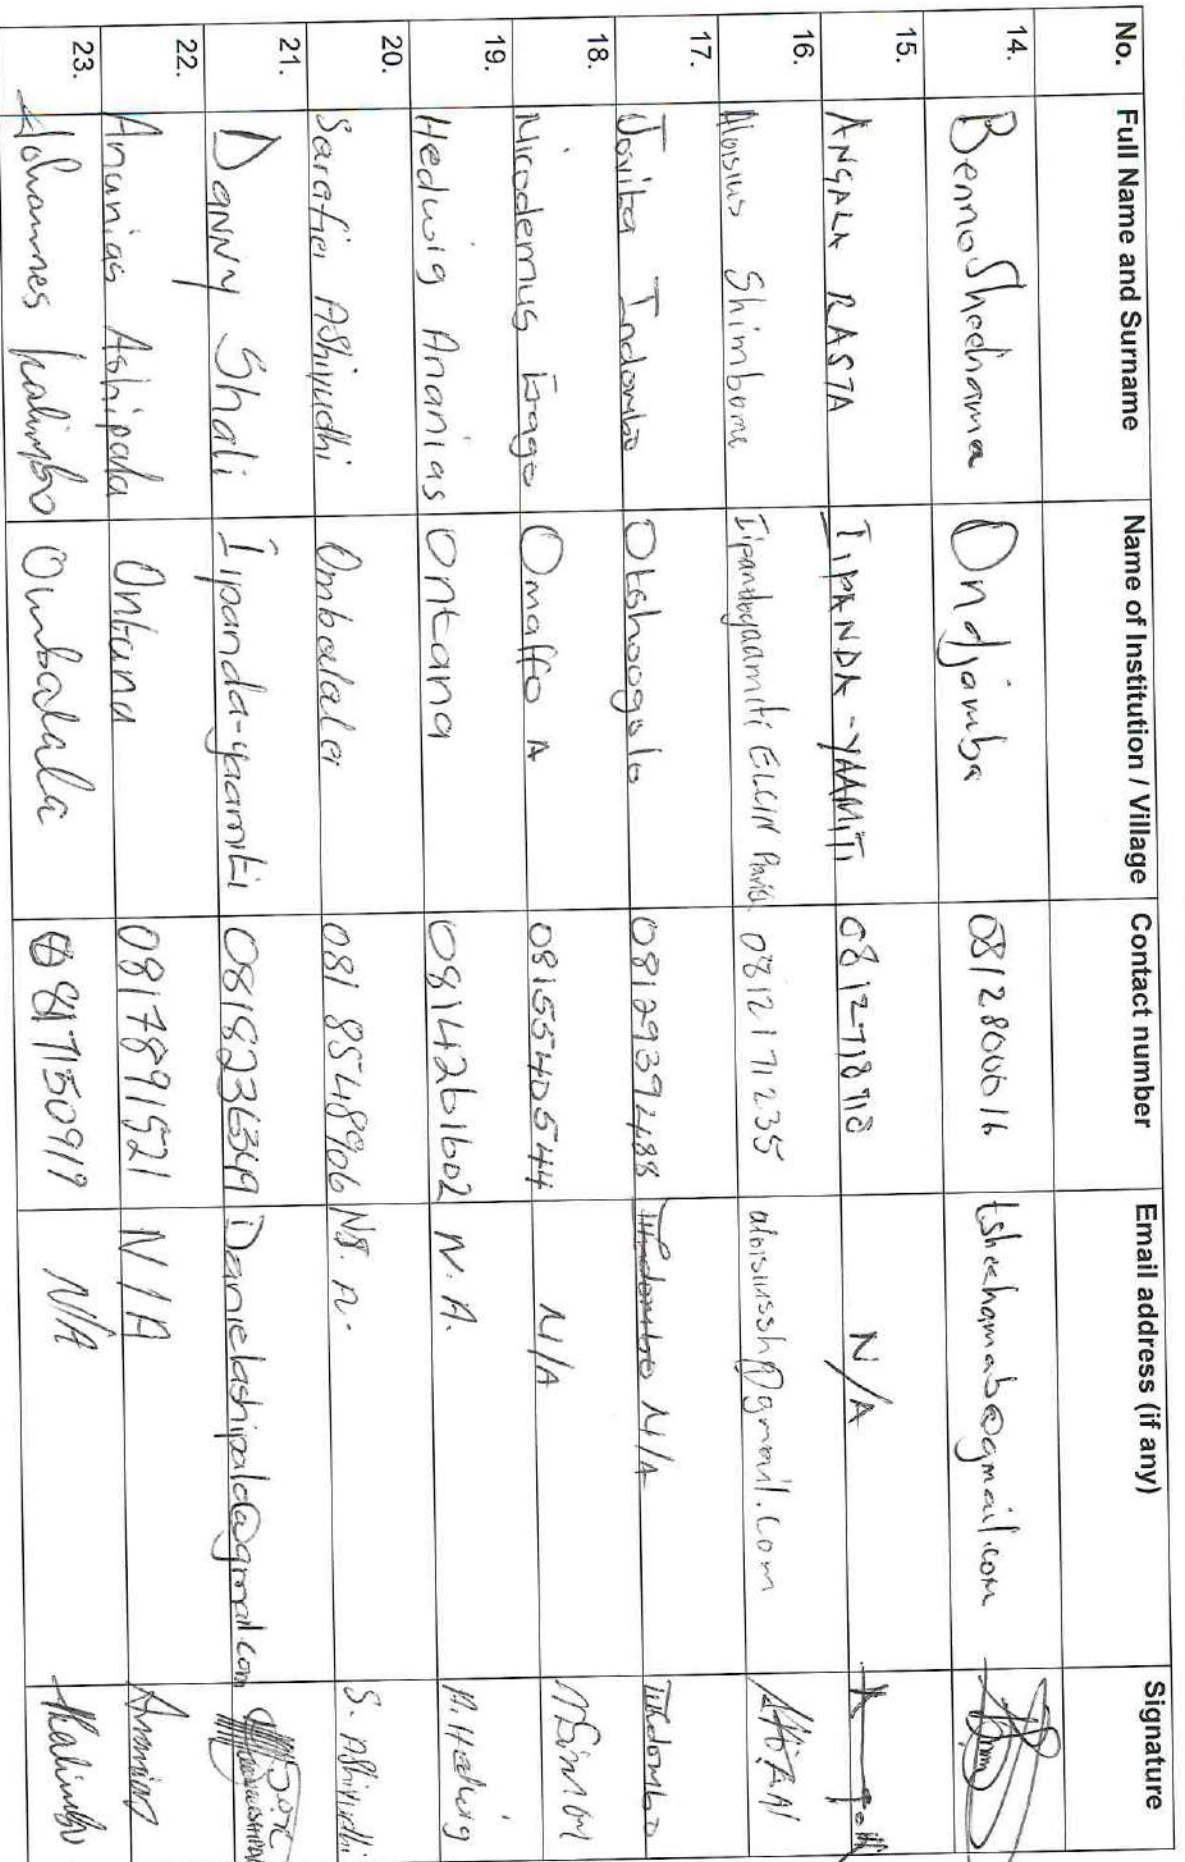 No. Full Name and Surname Name of Institution / Village Contact number Email address (if any) Signature
14. Benno Sheehama Ondjamba 0812800616 tsheehamab@gmail.com
15. ANGALA RASTA IIPANDA-YAAMITI N/A
16. Aloisius Shimbome Iipandayaamiti ELCIN Parish 0812171235 aloisiussh@gmail.com
17. Jovita Otshoogolo 0812939488 N/A
18. Nicodemus Omaffo A 0815540544 N/A
19. Hedwig Ananias Ontana 0814261602 N.A. A.Hedwig
20. Sarafia Ashiyudhi Ombalala 081 8548906 S. Ashiyudhi
21. Danny Shali Iipanda-yaamiti 0818236349 Danielashipala@gmail.com
22. Ananias Ashipala Ontana 0817891521 N/A Ananias
23. Johannes Kalimbo Ombalala N/A Kalimbo